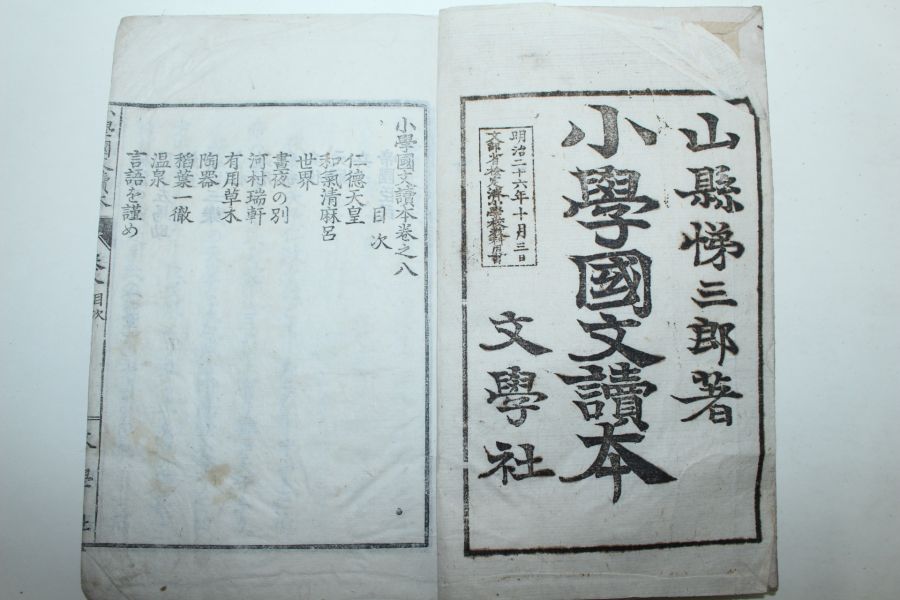 山縣悌三郎著
小學國文讀本
明治二十六年十月三日
文部省検定濟小學校教科用書
文學社
小學國文讀本卷之八
目次
仁德天皇
和氣清麻呂
世界
晝夜の別
河村瑞軒
有用草木
陶器
稻葉一徹
温泉
言語を謹め
小學國文讀本
卷八
目次
文學社